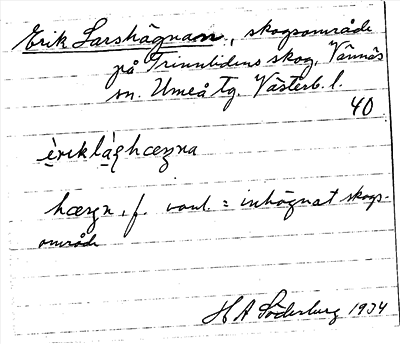 Erik Larshägnan, skogsområde
på Trinnlidens skog, Vännäs
sn. Umeå tg. Västerb. l.
40
hæŋn, f. vanl. = inhägnat skogs-
område
H A Söderberg 1934